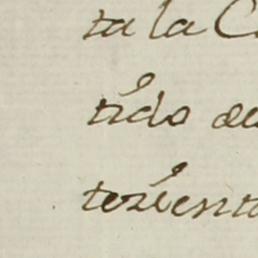 ta la C
tido de
tenient